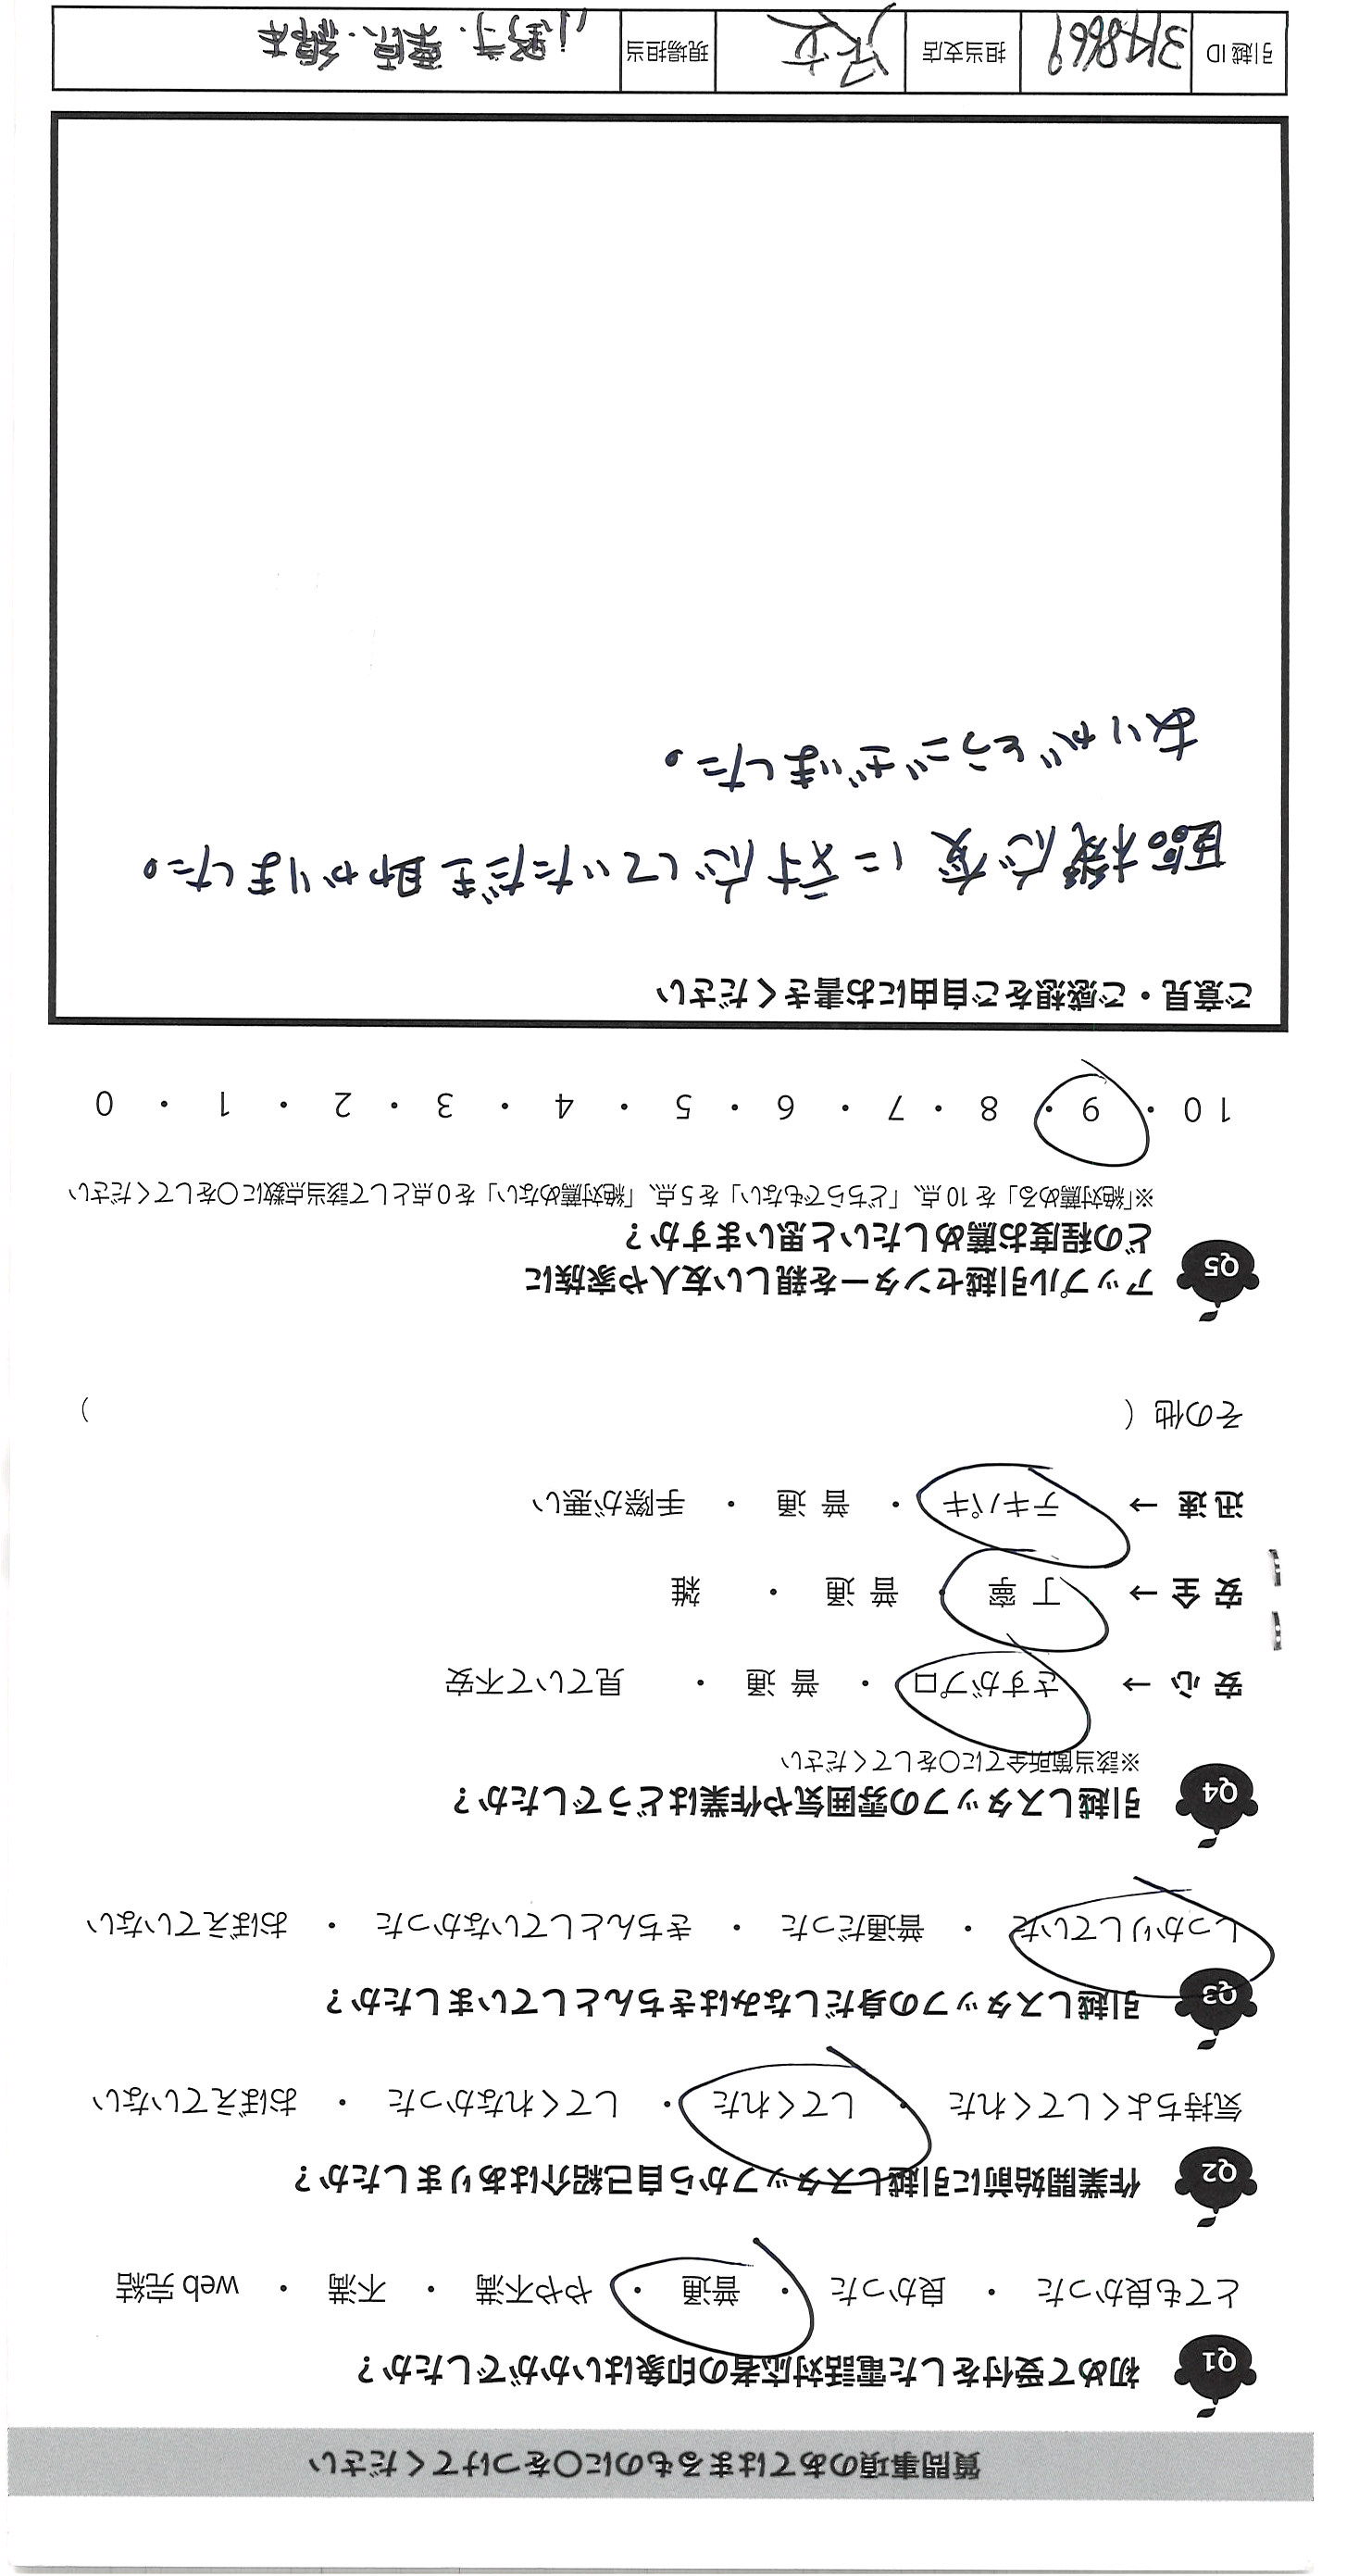 質問事項のあてはまるものに○をつけてください
Q1 初めて受付をした電話対応者の印象はいかがでしたか?
とても良かった ・ 良かった ・ 普通 ・ やや不満 ・ 不満 ・ web 完結
Q2 作業開始前に引越しスタッフから自己紹介はありましたか?
気持ちよくしてくれた ・ してくれた ・ してくれなかった ・ おぼえていない
Q3 引越しスタッフの身だしなみはきちんとしていましたか?
しっかりしていた ・ 普通だった ・ きちんとしていなかった ・ おぼえていない
Q4 引越しスタッフの雰囲気や作業はどうでしたか?
※該当箇所全てに○をしてください
安心 → さすがプロ ・ 普通 ・ 見ていて不安
安全 → 丁寧 ・ 普通 ・ 雑
迅速 → テキパキ ・ 普通 ・ 手際が悪い
その他 ( )
Q5 アップル引越センターを親しい友人や家族に
どの程度お薦めしたいと思いますか?
※「絶対薦める」を10点、「どちらでもない」を5点、「絶対薦めない」を0点として該当点数に○をしてください
10 ・ 9 ・ 8 ・ 7 ・ 6 ・ 5 ・ 4 ・ 3 ・ 2 ・ 1 ・ 0
ご意見・ご感想をご自由にお書きください
臨機応変に対応していただき助かりました。
ありがとうございました。
引越ID 担当支店 現場担当 小野寺